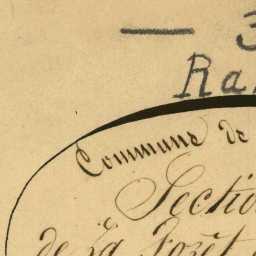 — 3
Ra
Commune de
Section
de La Forêt